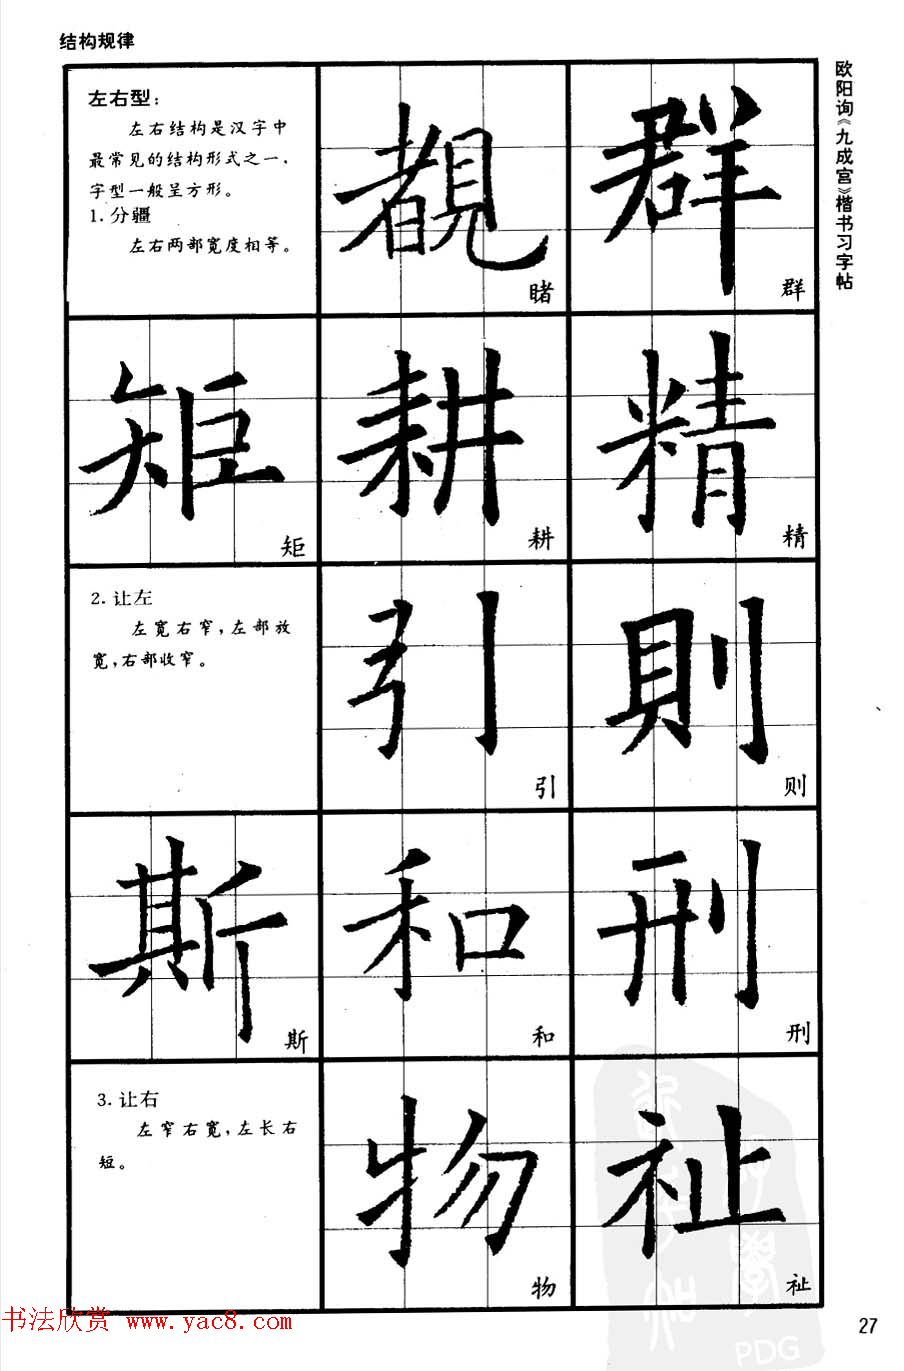 结构规律
欧阳询《九成宫》楷书习字帖
左右型：
左右结构是汉字中
最常见的结构形式之一，
字型一般呈方形。
1.分疆
左右两部宽度相等。
覩
睹
群
群
矩
矩
耕
耕
精
精
2.让左
左宽右窄，左部放
宽，右部收窄。
引
引
則
则
斯
斯
和
和
刑
刑
3.让右
左窄右宽，左长右
短。
物
物
祉
祉
书法欣赏 www.yac8.com
27
PDG